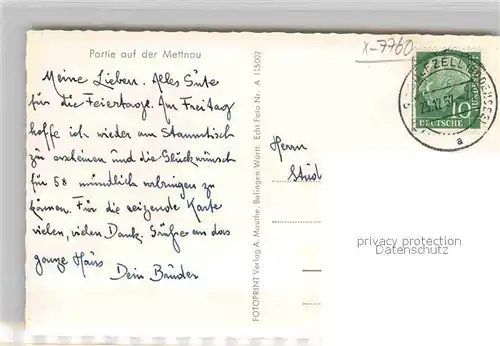 Partie auf der Mettnau
x-7760
Meine Lieben. Alles Gute
für die Feiertage. Am Freitag
hoffe ich wieder am Stammtisch
zu erscheinen und die Glückwünsch
für 58 mündlich vorbringen zu
können. Für die reizende Karte
vielen, vielen Dank. Grüße an das
ganze Haus Dein Bruder
FOTOPRINT Verlag A. Mauthe, Balingen Württ. Echt Foto Nr. A 115002
Herrn
Stud
10
DEUTSCHE
a
privacy protection
Datenschutz